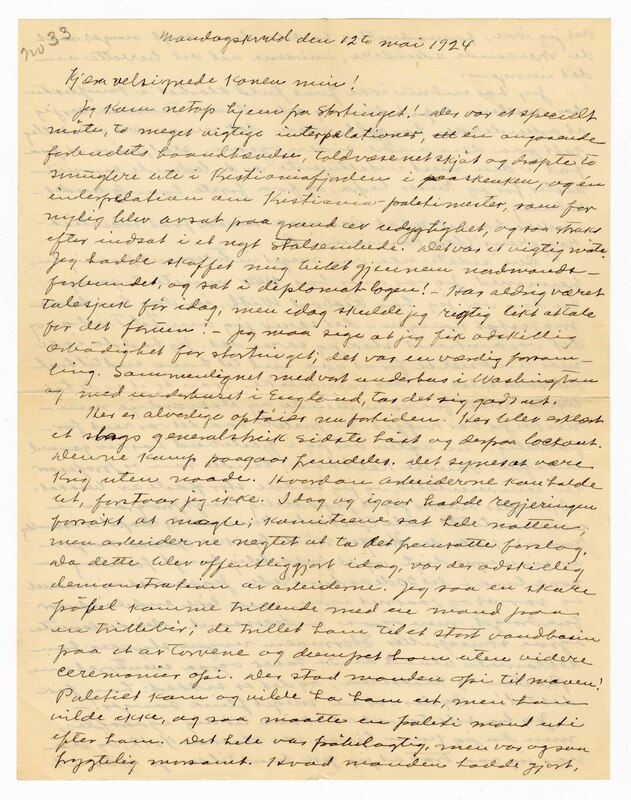 No 33
Mandagskveld den 12te mai 1924
Kjæra velsignede Konen min!
Jeg kom netop hjem fra Stortinget! Der var et specielt
møte, to meget vigtige interpelationer, en angaaende
forbudets haandhævelse, toldvæsenet skjøt og dræpte to
smuglere ute i Kristianiafjorden i paaskeuken, og én
interpelation om Kristiania-politimester, som for
nylig blev avsat paa grund av udygtighet, og saa straks
efter indsat i et nyt Statsembede. Det var et vigtig møte.
Jeg hadde skaffet mig billet gjennem nordmands-
forbundet, og sat i diplomatlogen! - Har aldrig været
talesjuk før idag, men idag skulde jeg rigtig likt at tale
for det forum! - Jeg maa sige at jeg fik adskillig
ærbødighet for stortinget; det var en værdig forsam-
ling. Sammenlignet med vort underhus i Washington
og med underhuset i England, tar det sig godt ut.
Her er alvorlige optøier nu for tiden. Her blev erklært
et slags generalstreik sidste høst og derpaa lockout.
Denne kamp paagaar fremdeles. Det synes at være
krig uten naade. Hvordan arbeiderne kan holde
ut, forstaar jeg ikke. Idag og igaar hadde regjeringen
forsøkt at mægle; komiteene sat hele natten,
men arbeiderne negtet at ta det fremsatte forslag.
Da dette blev offentliggjort idag, var der adskillig
demonstration av arbeiderne. Jeg saa en skare
pøbel komme trillende med en mand paa
en trillebør; de trillet ham til et stort vandbasin
paa et av torvene og dumpet ham uten videre
ceremonier opi. Der stod manden opi til maven!
Politiet kom og vilde ha ham ut, men han
vilde ikke, og saa maatte en politimand uti
efter ham. Det hele var pøbelagtig, men var ogsaa
frygtelig morsomt. Hvad manden hadde gjort,